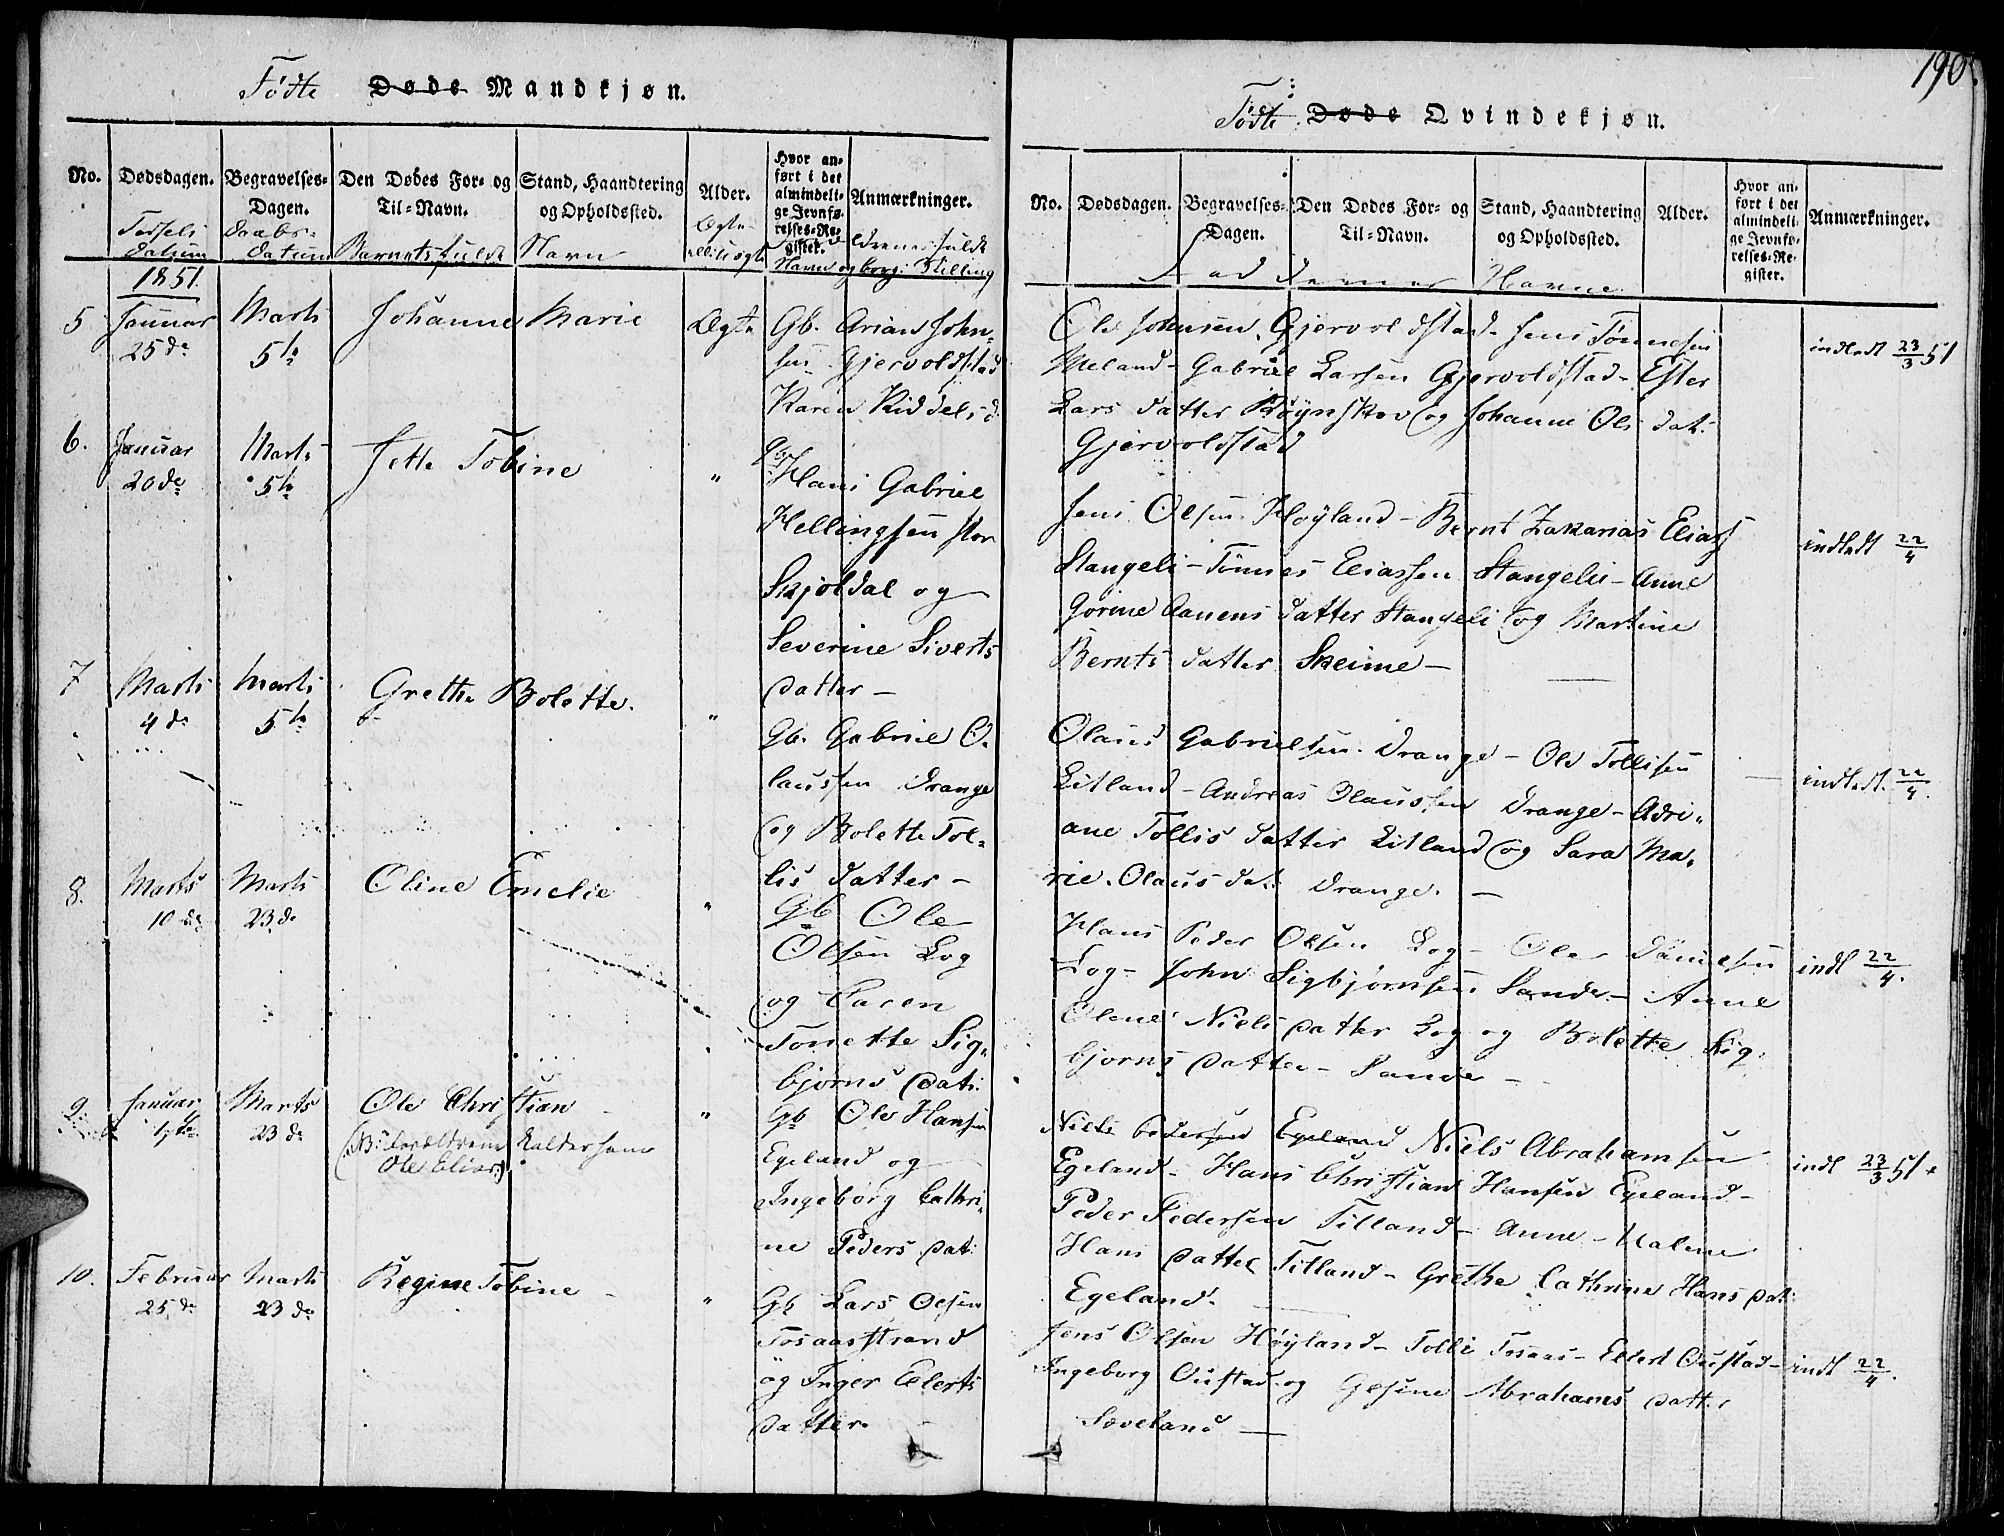 190.
Fødte Døde Mandkjøn.
Fødte Døde Qvindekjøn.
No. Dødsdagen. Begravelses-Dagen. Den Dødes For- og Til-Navn. Stand, Haandtering og Opholdssted. Alder. Hvor anført i det almindelige Jevnførelses-Register. Anmærkninger.
Fødsels datum Daabs-datum Barnets fulde Navn Ægte ell. uægte Forældrenes fulde Navn og borg: Stilling
No. Dødsdagen. Begravelses-Dagen. Den Dødes For- og Til-Navn. Stand, Haandtering og Opholdssted. Alder. Hvor anført i det almindelige Jevnførelses-Register. Anmærkninger.
Faddernes Navne
1851.
5 Januar 25de Marts 5te Johanne Marie Ægte
Gb. Arian John-
sen Gjervoldstad
Karen Kiddelsd.
Ole Johnsen Gjervoldstad - Jens Tønnesen
Meland - Gabriel Larsen Gjervoldstad - Ester
Lars datter Røynskov og Johanne Ols dat:
Gjervoldstad
indledt 23/3 51
6. Januar 20de Marts 5te Jette Tobine "
Gb. Hans Gabriel
Hellingsen stor
Skjoldal og
Severine Siverts
datter -
Jens Olsen Høyland - Bernt Zakarias Elias
Stangeli - Tønnes Eliassen Stangeli - Anne
Gorine Aanens datter Stangeli og Martine
Bernts datter Skeime -
indledt 22/4
7 Marts 4de Marts 5te Grethe Bolette. "
Gb. Gabriel O.
laussen Drange
og Bolette Tol-
lis datter -
Olaus Gabrielsen Drange - Ole Tollisen
Litland - Andreas Olaussen Drange - Adri-
ane Tollis datter Litland og Sara Ma-
rie Olaus dat: Drange. -
indledt. 22/4.
8. Marts 10de Marts 23de Oline Emelie "
Gb Ole
Olsen Log
og Caren
Tonette Sig-
bjørns dat:
Hans Peder Olsen Log - Ole Danielsen
Log - John Sigbjørnsen Sande - Anne
Olene Niels datter Log og Bolette Sig-
bjørns datter - Sande -
indl 22/4.
9. Januar Marts 23de Ole Christian "
(NB: forældrene kalder ham
Ole Elias)
Gb Ole Hansen
Egeland og
Ingeborg Cathri-
ne Peders dat:
Niels Pedersen Egeland Niels Abrahamsen
Egeland - Hans Christian Hansen Egeland -
Peder Pedersen Tilland - Anne Malene
Hans datter Tilland - Grethe Cathrine Hans dat:
Egeland.
indl 23/3 51
10. Februar 25de Marts 23de Regine Tobine "
Gb Lars Olsen
Tosaasstrand
og Inger Elerts
datter
Jens Olsen Høyland - Tolli Tosaas - Elert Oustad -
Ingeborg Oustad og Gesine Abrahams datter
Soveland -
indl 22/4.